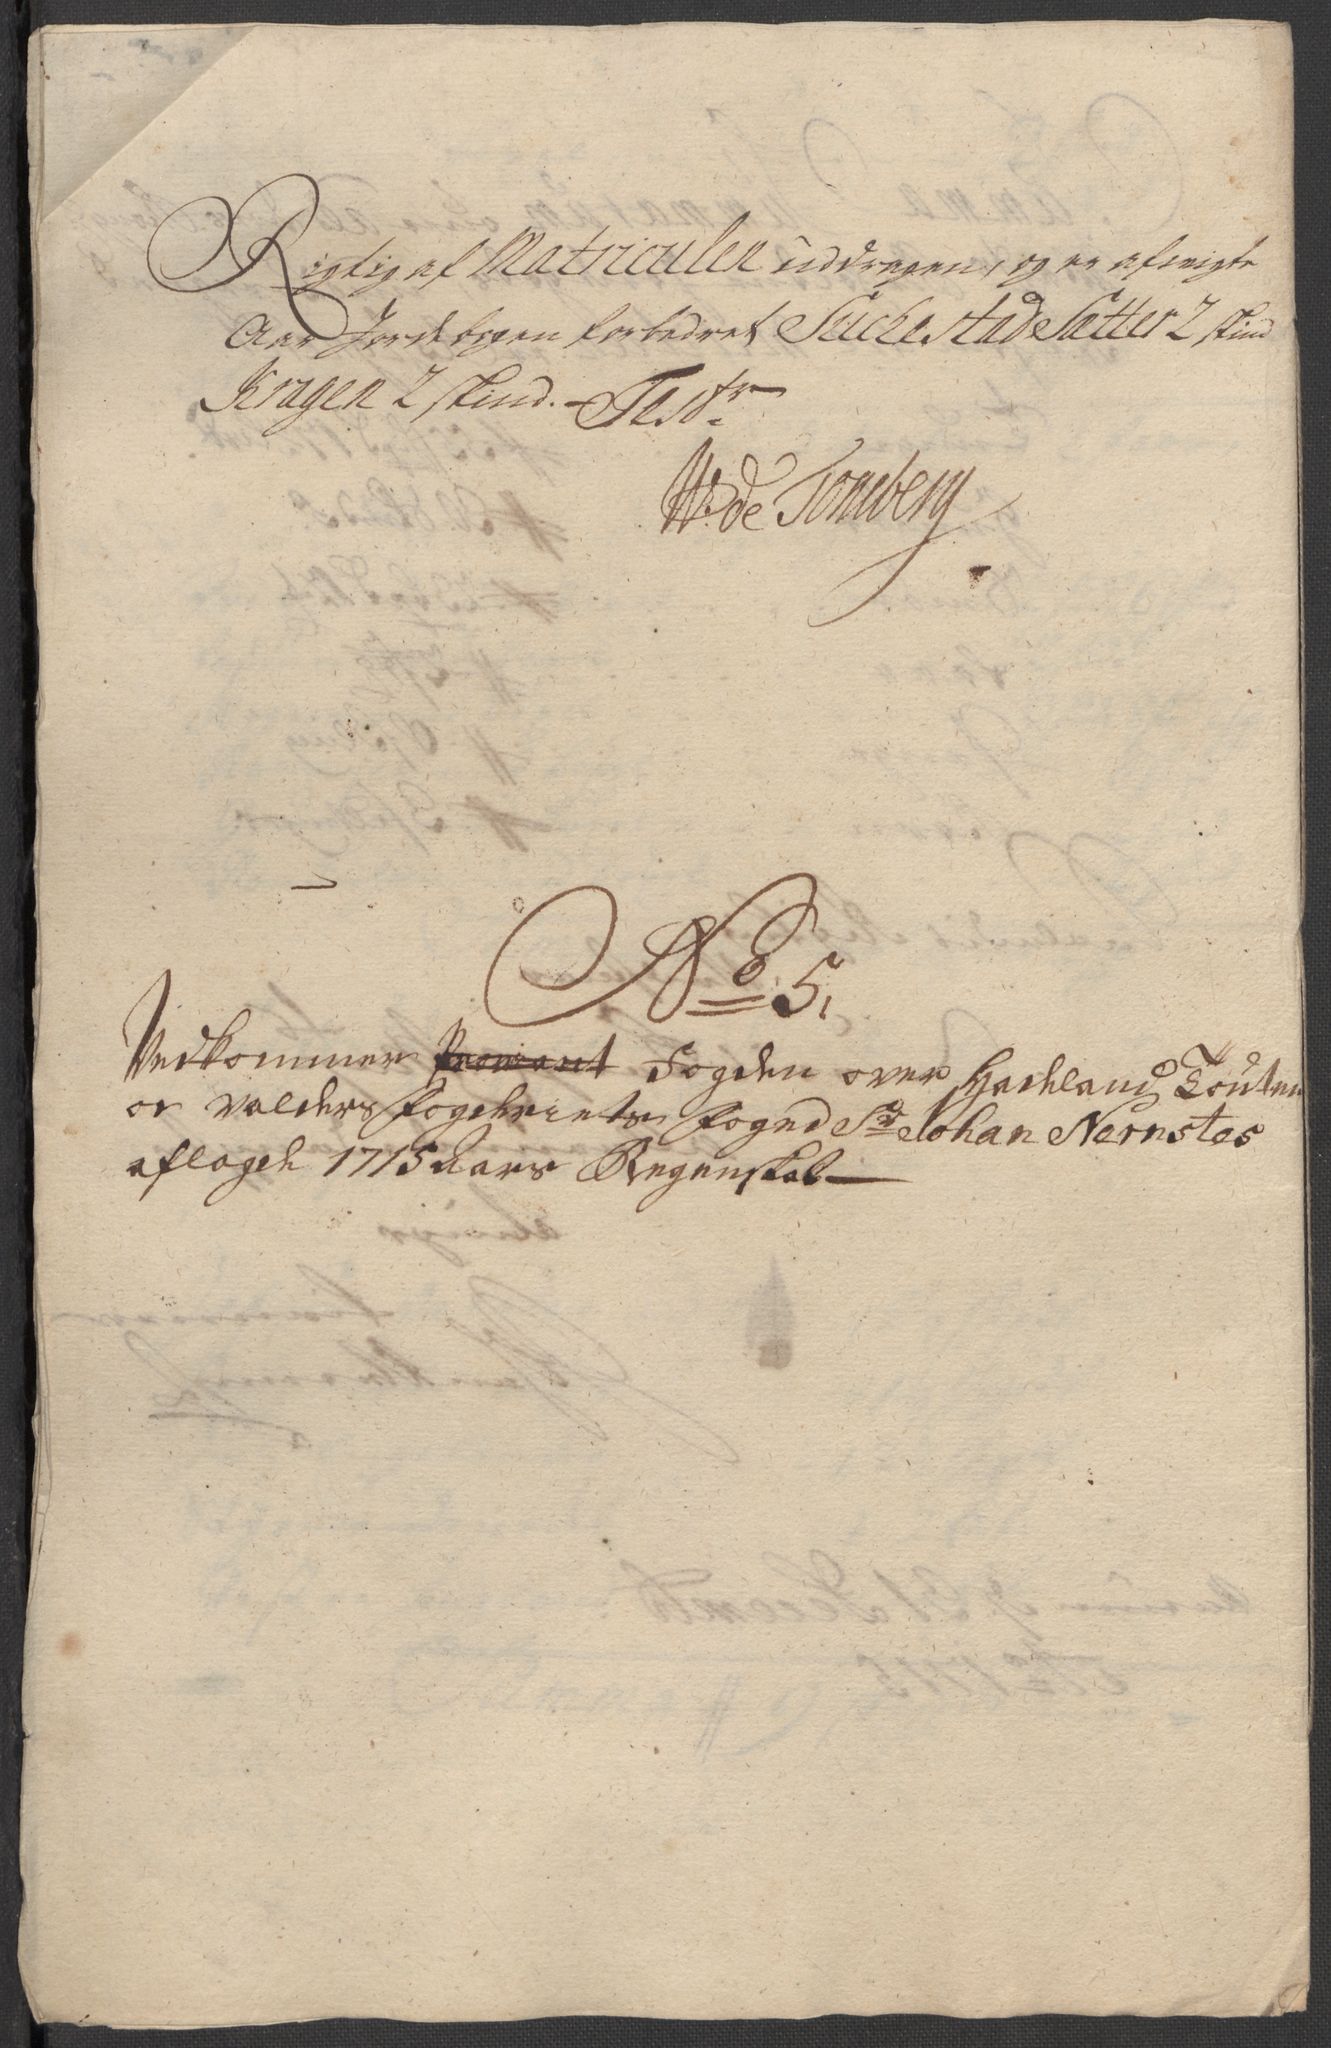 Rigtig af Matriculen uddragen, og er afvigte
Aar Jordebogen forbedret Suckestad Sætter 2 skind
Kragen 2 skind. Test
W: de Tonsberg
No 5,
Vedkommer Proviant Fogden over Hadeland Touten
oc Valders fogderiets foged Sr Johan Nernstes
aflagde 1715 Aars Regenskab